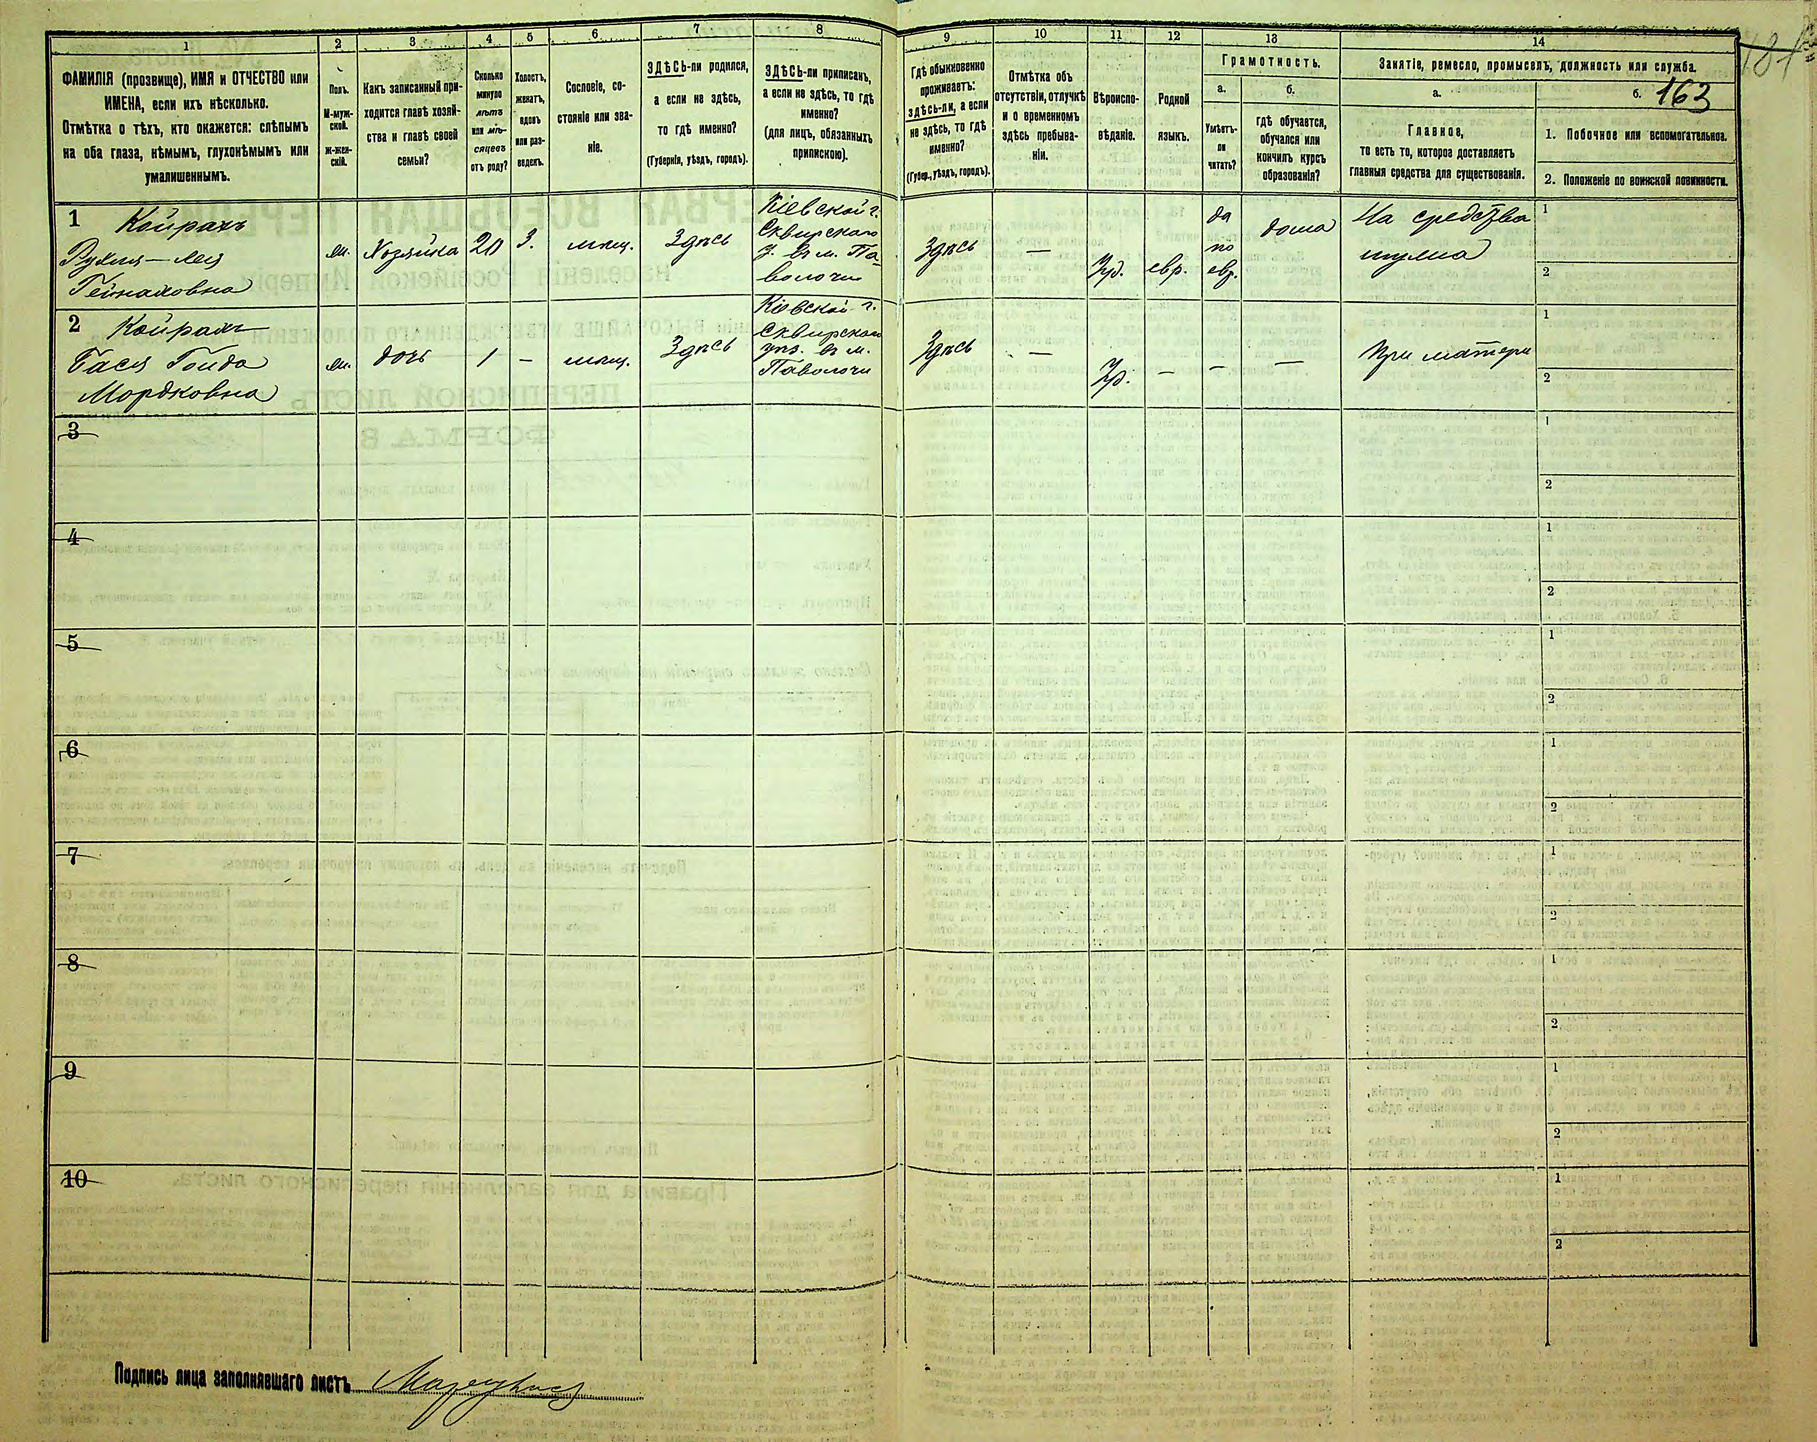 1 2 3 4 5 6 7 8 9 10 11 12 13 14
181
163
ФАМИЛІЯ (прозвище), ИМЯ и ОТЧЕСТВО или
ИМЕНА, если ихъ нѣсколько.
Отмѣтка о тѣхъ, кто окажется: слѣпымъ
на оба глаза, нѣмымъ, глухонѣмымъ или
умалишеннымъ.
Полъ.
М-муж-
ской.
Ж-жен-
скій.
Какъ записанный при-
ходится главѣ хозяй-
ства и главѣ своей
семьи?
Сколько
минуло
лѣтъ
или мѣ-
сяцевъ
отъ роду?
Холостъ,
женатъ,
вдовъ
или раз-
веденъ.
Сословіе, со-
стояніе или зва-
ніе.
ЗДѢСЬ-ли родился,
а если не здѣсь,
то гдѣ именно?
(Губернія, уѣздъ, городъ).
ЗДѢСЬ-ли приписанъ,
а если не здѣсь, то гдѣ
именно?
(для лицъ, обязанныхъ
припискою).
Гдѣ обыкновенно
проживаетъ:
здѣсь-ли, а если
не здѣсь, то гдѣ
именно?
(Губер., уѣздъ, городъ).
Отмѣтка объ
отсутствіи, отлучкѣ
и о временномъ
здѣсь пребыва-
ніи.
Вѣроиспо-
вѣданіе.
Родной
языкъ.
Грамотность.
а.
Умѣетъ-
ли
читать?
б.
гдѣ обучается,
обучался или
кончилъ курсъ
образованія?
Занятіе, ремесло, промыселъ, должность или служба.
а.
Главное,
то есть то, которое доставляетъ
главныя средства для существованія.
б.
1. Побочное или вспомогательное.
2. Положеніе по воинской повинности.
1 Койрахъ
Рухля—Лея
Гейнаховна
жи. Хозяйка 20 З. мѣщ. Здѣсь
Кіевской г.
Сквирскаго
у. въ м. Па-
волочи
Здѣсь — Іуд. евр.
да
по
евр.
дома
На средства
мужа
1
2
2 Койрахъ
Бася Гольда
Мордковна
жи. дочь 1 — мѣщ. Здѣсь
Кіевской г.
Сквирскаго
уѣз. въ м.
Паволочи
Здѣсь — Іуд. — — — При матери
1
2
3 1
2
4 1
2
5 1
2
6 1
2
7 1
2
8 1
2
9 1
2
10 1
2
Подпись лица заполнявшаго листъ